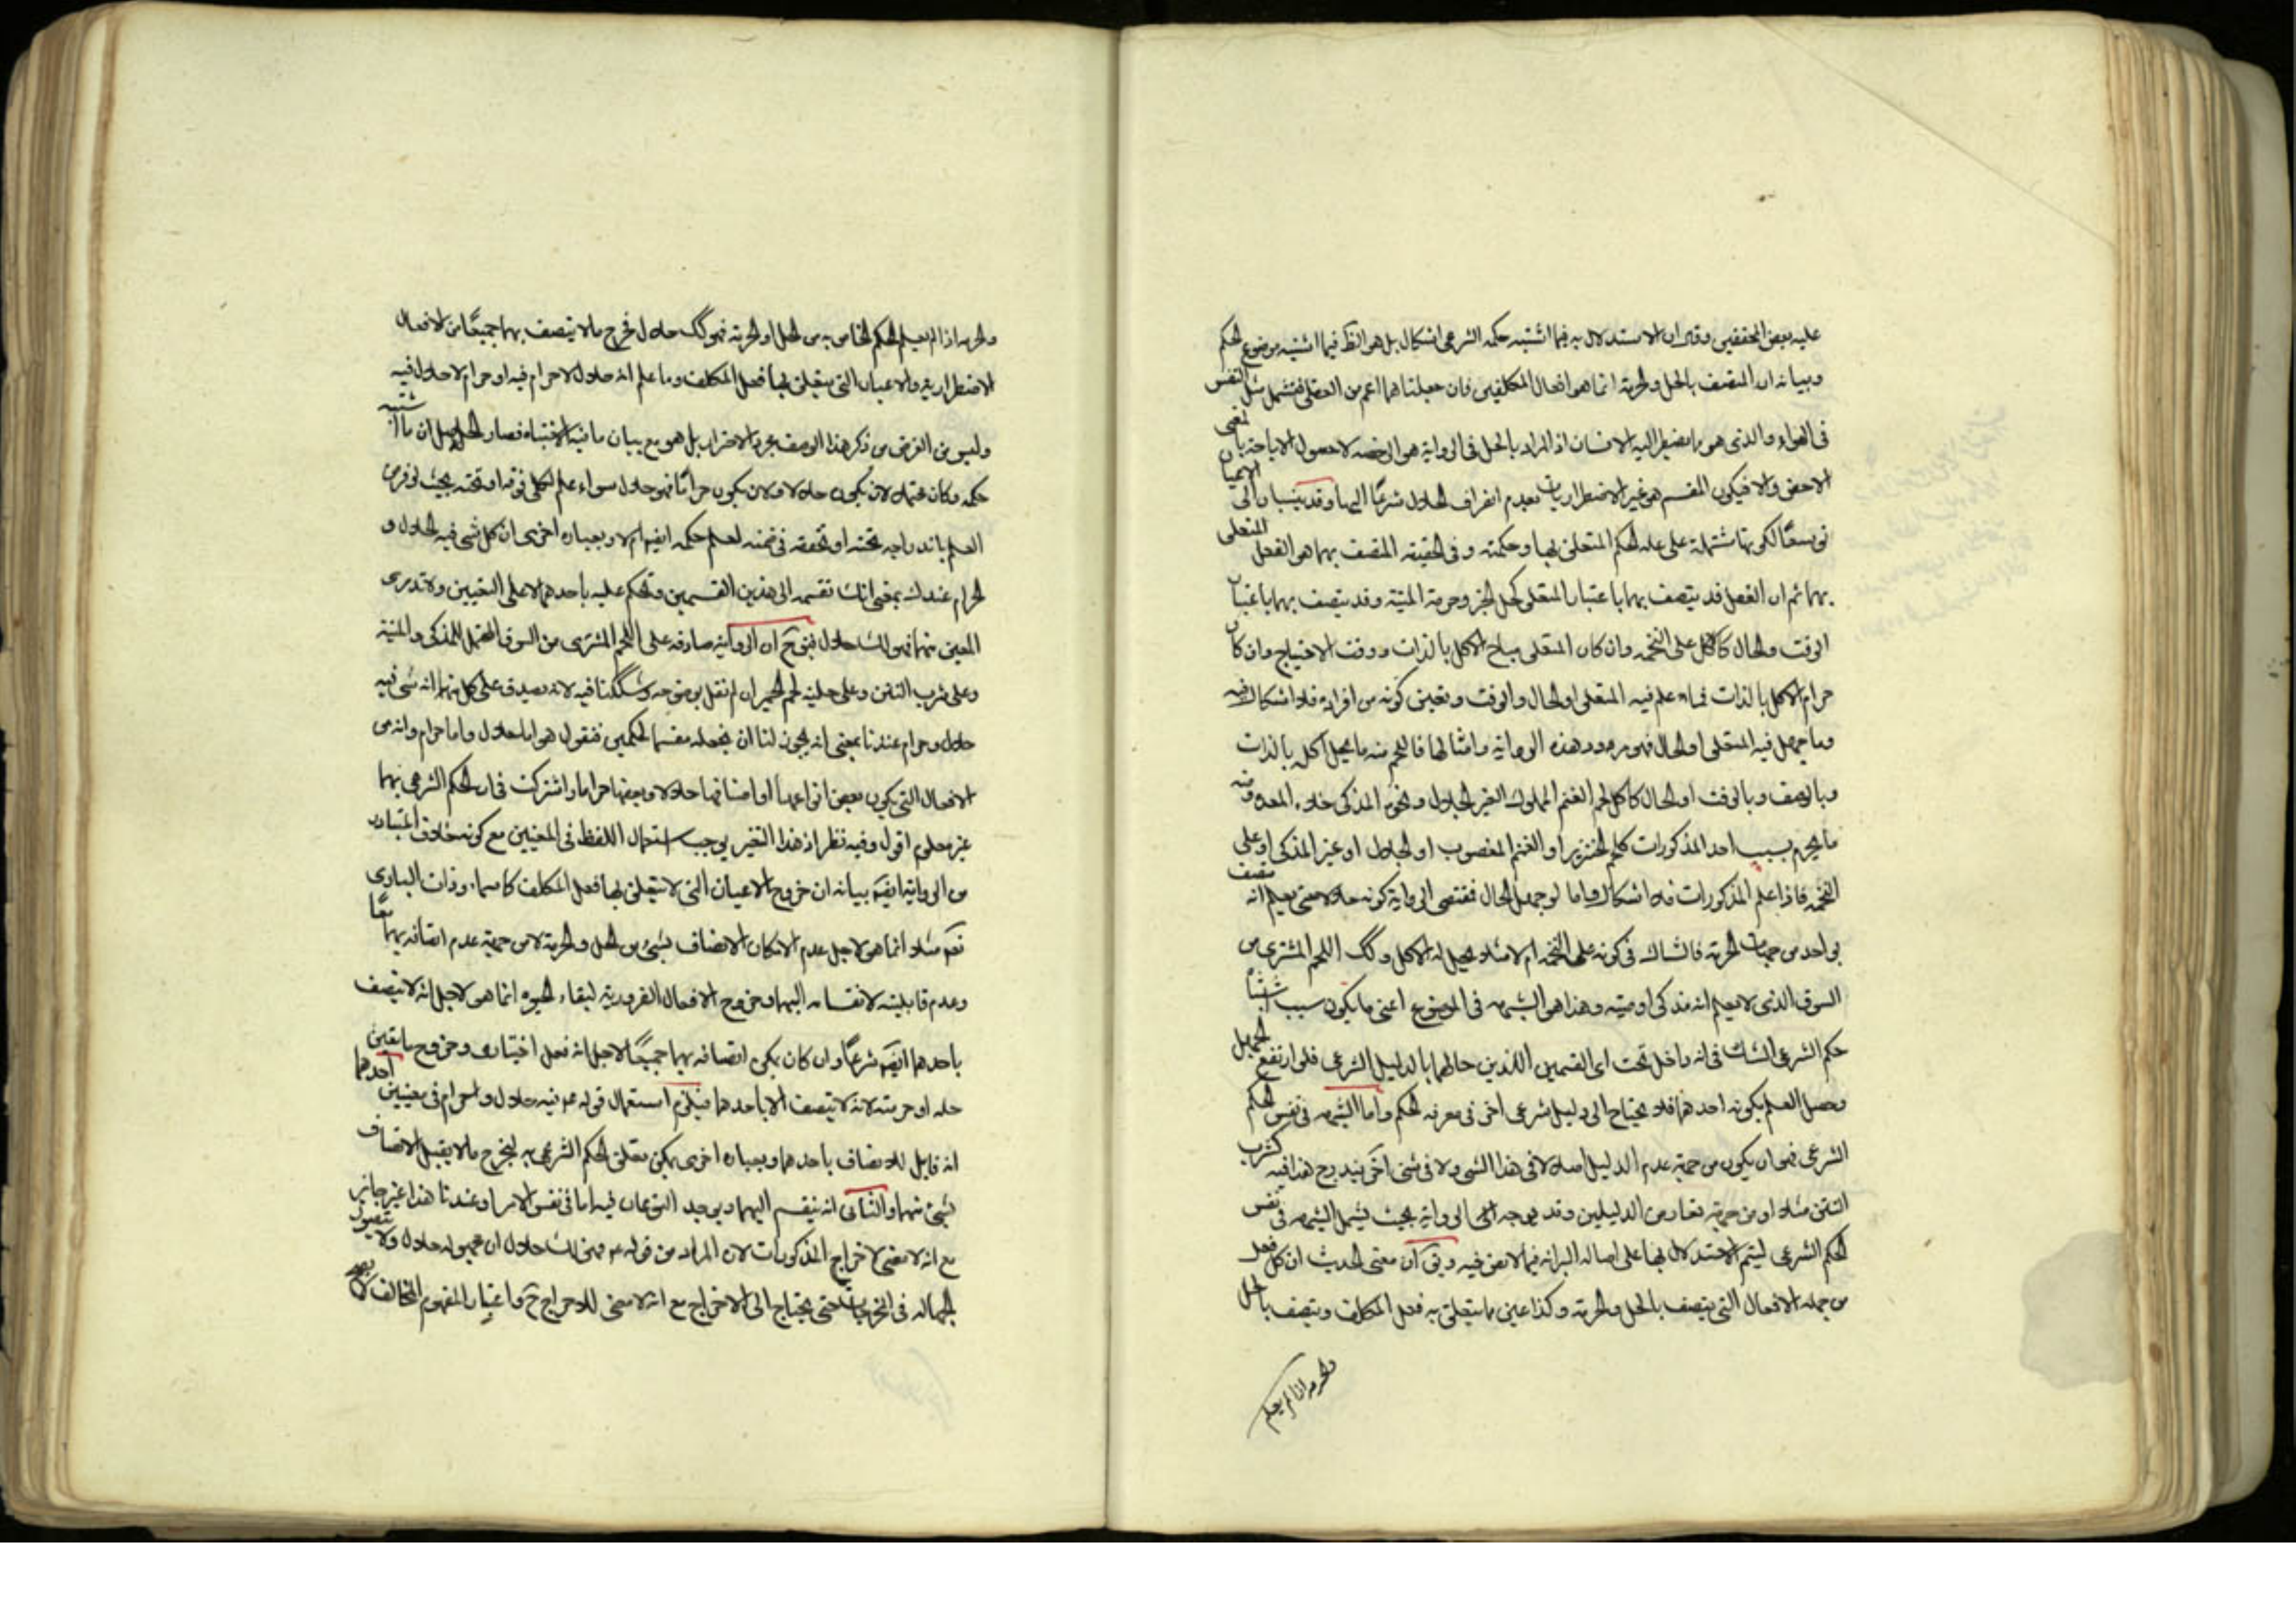 عليه بعض المحققين وقال ان الاستدلال به فيما اشتبه حكمه الشرعى اشكال بل هو انظ فيما اشتبه موضوع الحكم
وبيانه ان المتصف بالحل والحرمة انما هو افعال المكلفين فان جعلناهما اعم من العقلى فتشمل مثل التنفس
فى الهواء والذى هو ما يضطر اليه الانسان اذ المراد بالحل فى الرواية هو الرخصه لا حصول الاباحة بالمعنى
الاخص والا فيكون المقسم هو غير الاضطراريات لعدم انصراف الحلال شرعًا اليها وقد ينسبان الى الاعيان
توسعًا لكونها مشتملة على علة الحكم المتعلق بها وحكمته وفى الحقيقة المتصف بهما هو الفعل المتعلق
بهما ثم ان الفعل قد يتصف بهما باعتبار المتعلق كحل الخبز وحرمة الميتة وقد يتصف بهما باعتبار
الوقت والحال كالاكل على التخمه وان كان المتعلق مباح الاكل بالذات ووقت الاحتياج وان كان
حرام الاكل بالذات فما علم فيه المتعلق او الحال والوقت وتعين كونه من افراده فلا اشكال فيه
وما جهل فيه المتعلق او الحال فهو مورد هذه الرواية وامثالها فاللحم منه ما يحل اكله بالذات
وبالوصف وبالوقت او الحال كاكل لحم الغنم المملوك الغير الجلال ونحوه المذكى خلاء المعده ومنه
ما يحرم بسبب احد المذكورات كلحم الخنزير او الغنم المغصوب او الجلال او غير المذكى او على
التخمه فاذا علم المذكورات فلا اشكال واما لو جهل الحال فمقتضى الرواية كونه حلالا حتى يعلم انه متصف
بواحد من جهات الحرمة فالشاك فى كونه على التخمه ام لا مثلا يحل له الاكل وكك اللحم المشترى من
السوق الذى لا يعلم انه مذكى او ميته وهذا هو الشبهه فى الموضوع اعنى ما يكون سبب اشتباه
حكم الشرعى الشك فى انه داخل تحت اى القسمين اللذين حالهما بالدليل الشرعى فلو ارتفع الجهل
وحصل العلم بكونه احدهما فلا يحتاج الى دليل شرعى اخر فى معرفة الحكم واما الشبهه فى نفس الحكم
الشرعى فهو ان يكون من جهة عدم الدليل اصلا لا فى هذا الشى ولا فى شى اخر يندرج هذا فيه كشرب
التتن مثلا او من جهة تعارض الدليلين وقد يوجه الرواية بحيث يشمل الشبهه فى نفس
الحكم الشرعى ليتم الاستدلال بها على اصالة البرائه فيما لا نص فيه ويق ان معنى الحديث ان كل فعل
من جملة الافعال التى يتصف بالحل والحرمة وكذا عين ما يتعلق به فعل المكلف ويتصف بالحل
والحرمه اذا لم يعلم
والحرمه اذا لم يعلم الحكم الخاص به من الحل او الحرمة فهو لك حلال فخرج ما لا يتصف بهما جميعًا من الافعال
الاضطرارية والاعيان التى لا يتعلق بها فعل المكلف وما علم انه حلال لا حرام فيه او حرام لا حلال فيه
وليس من الغرض من ذكر هذا الوصف مجرد الاحتراز بل هو مع بيان ما فيه الاشتباه فصار الحاصل ان ما اشتبه
حكمه وكان محتملا لان يكون حلالا ولان يكون حرامًا فهو حلال سواء علم لكلى فوقه او تحته بحيث لو فرض
العلم باندراجه تحته او تحققه فى ضمنه لعلم حكمه ايضا ام لا وبعباره اخرى ان كل شى فيه الحلال و
الحرام عندك بمعنى انك تقسمه الى هذين القسمين وتحكم عليه باحدهما لا على التعيين ولا تدرى
المعين منهما فهو لك حلال فيق ح ان الرواية صادقه على اللحم المشترى من السوق المحتمل للمذكى والميتة
وعلى شرب التتن وعلى حلية لحم الحمير ان لم نقل بوضوحه وشككنا فيه لانه يصدق على كل منها انه شى فيه
حلال وحرام عندنا بمعنى انه يجوز لنا ان نجعله مقسما لحكمين فنقول هو اما حلال واما حرام وانه من
الافعال التى يكون بعض انواعها او اصنافها حلالا وبعضها حراما واشتركت فى ان الحكم الشرعى بهما
غير معلوم اقول وفيه نظر اذ هذا التفسير يوجب استعمال اللفظ فى المعنيين مع كونه خلاف المتبادر
من الرواية ايضا بيانه ان خروج الاعيان التى لا يتعلق بها فعل المكلف كالسماء وذات البارى
تعم مثلا انما هو لاجل عدم الامكان الاتصاف بشئ من الحل والحرمة لا من جهة عدم اتصافه بهما معًا
وعدم قابليته لانقسامه اليهما وخروج الافعال الضرورية لبقاء الحيوه انما هو لاجل انه لا يتصف
باحدهما ايضا شرعًا وان كان يمكن اتصافه بهما جميعًا لاجل انه فعل اختيارى وخروج ما يقين
حله او حرمته لانه لا يتصف الا باحدهما فيلزم استعمال قوله ع فيه حلال وحرام فى معنيين احدهما
انه قابل للاتصاف باحدهما وبعباره اخرى يمكن تعلق الحكم الشرعى به ليخرج ما لا يقبل الاتصاف
بشئ منهما والثانى انه ينقسم اليهما ويوجد النوعان فيه اما فى نفس الامر او عندنا هذا غير جايز
مع انه لا معنى لاخراج المذكورات لان المراد من قوله ع فهو لك حلال ان مجهوله حلال ولا يتصور
الجهالة فى المخرجات حتى يحتاج الى الاخراج مع انه لا معنى للاخراج ح واعتبار المفهوم المخالف